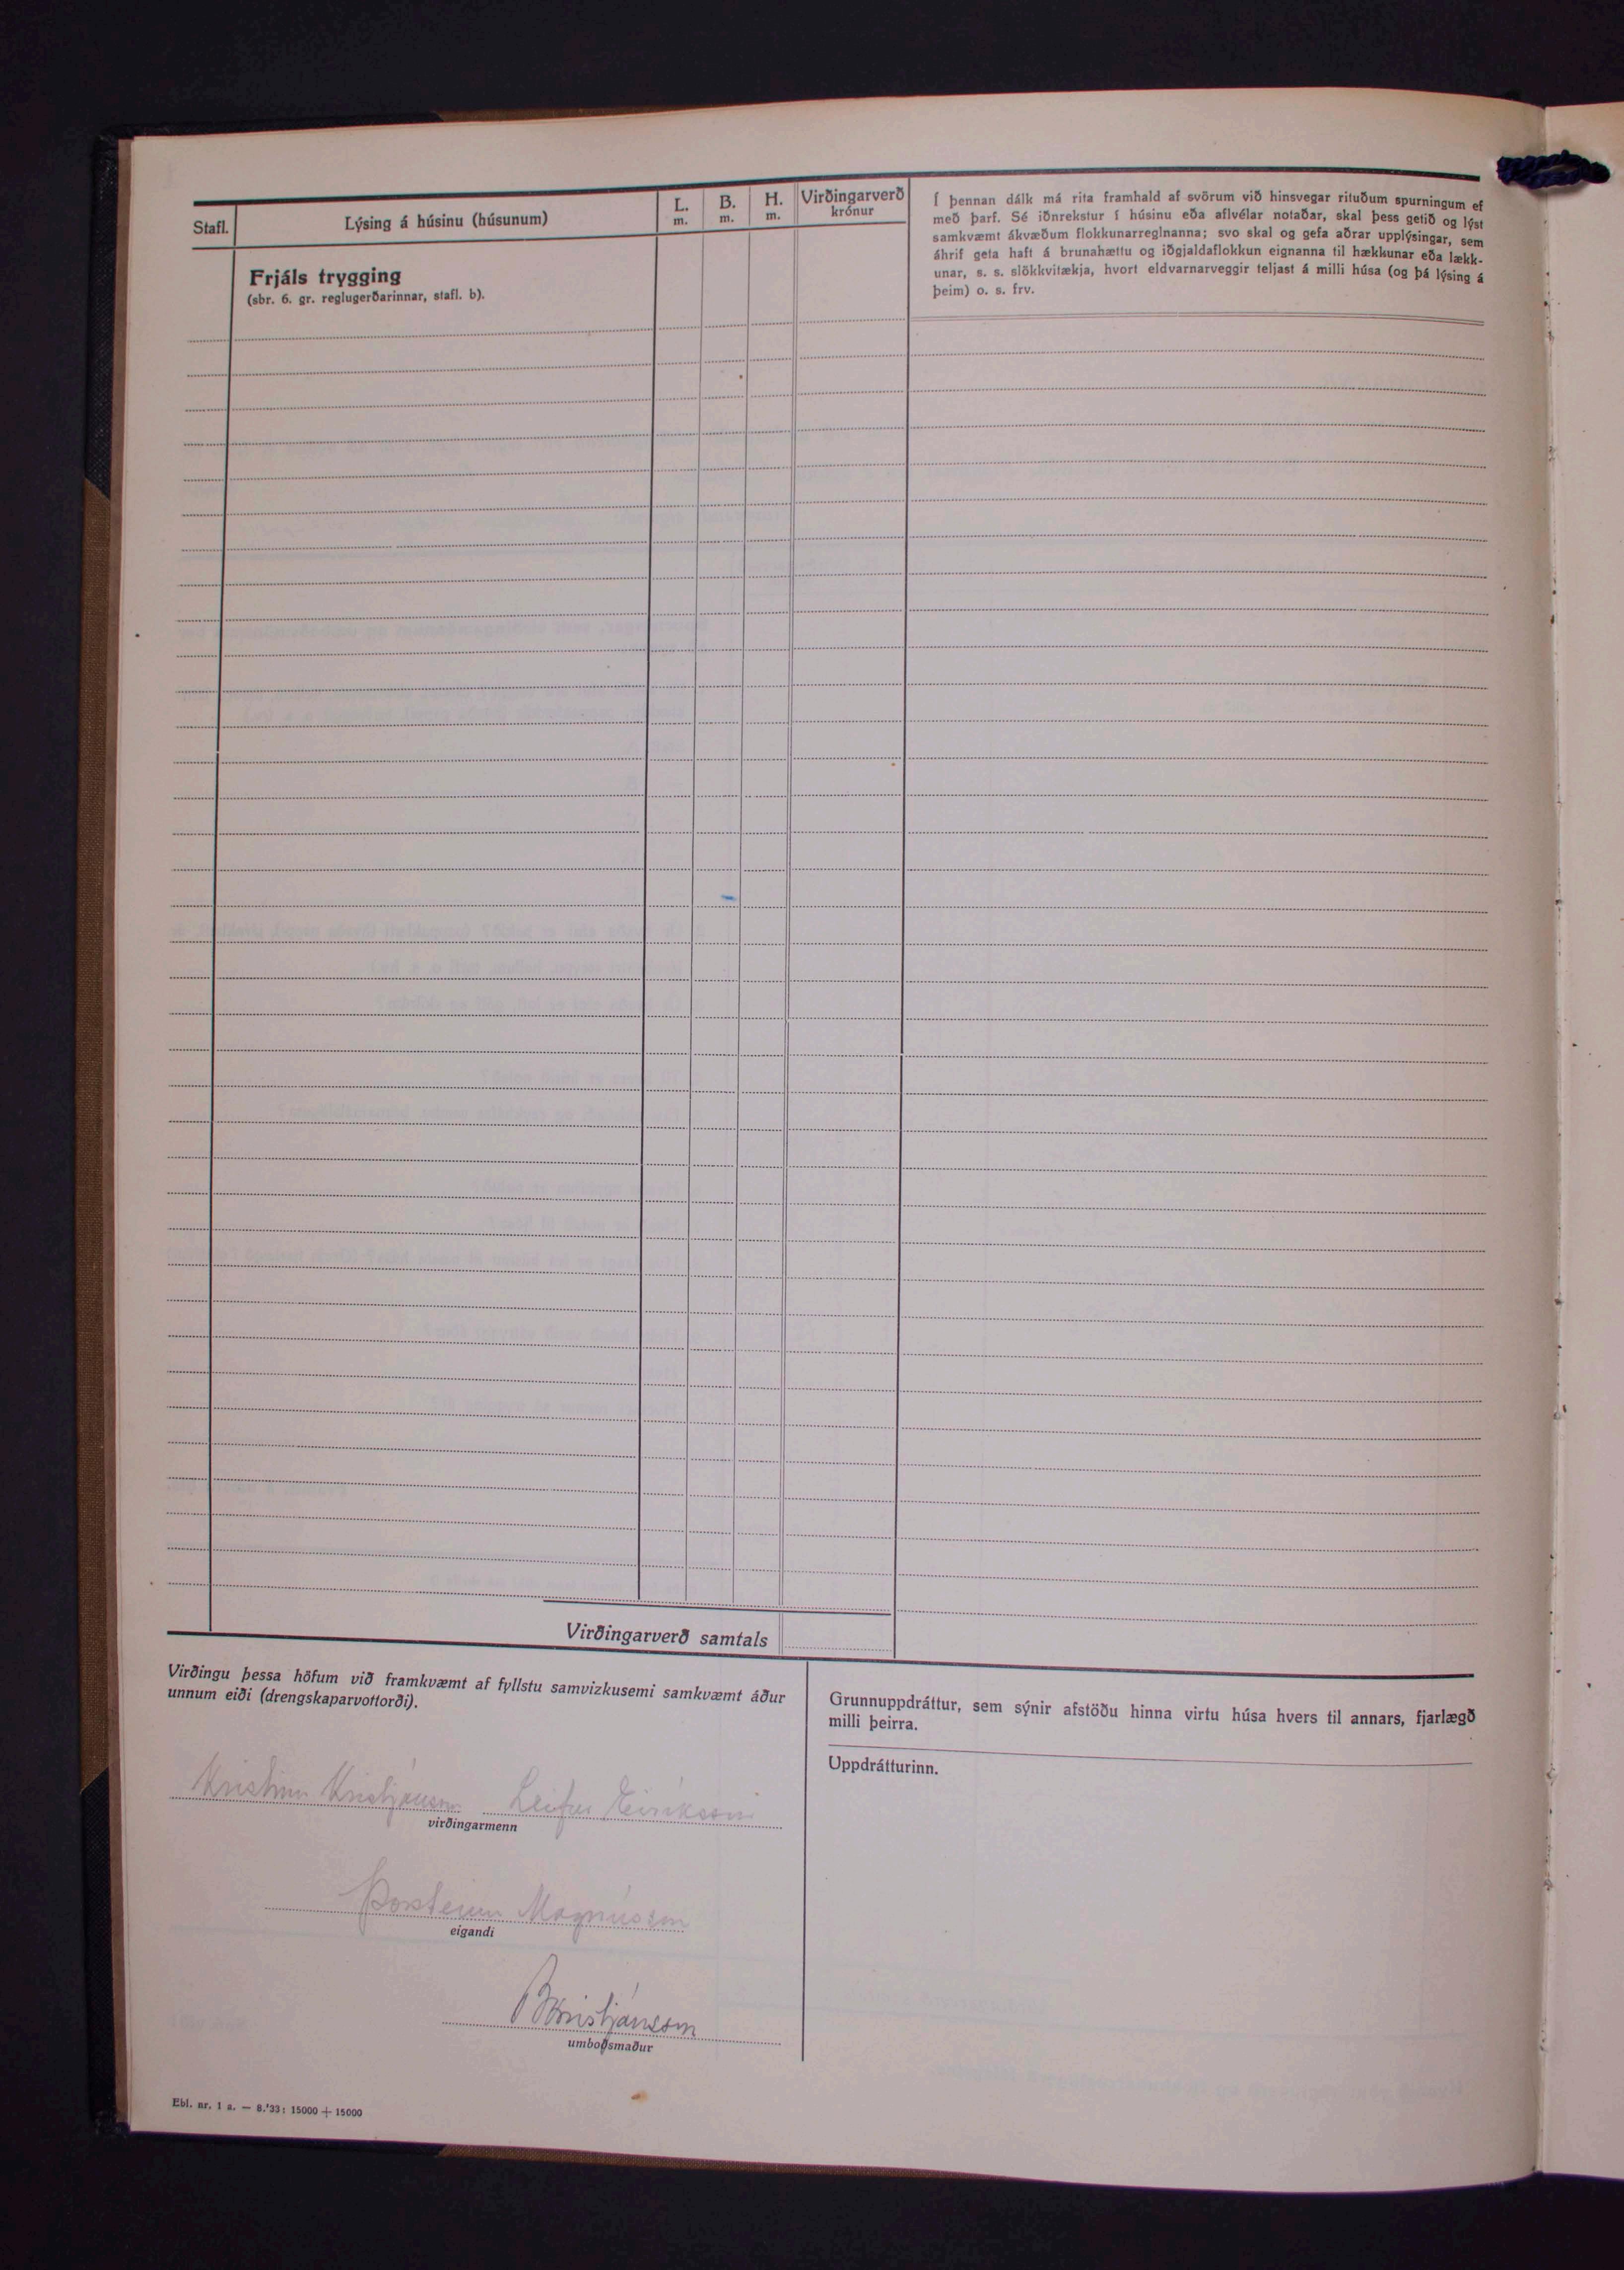 Stafl.
Lýsing á húsinu (húsunum)
L.
m.
B.
m.
H.
m.
Virðingarverð
krónur
Frjáls trygging
(sbr. 6. gr. reglugerðarinnar, stafl. b).
Í þennan dálk má rita framhald af svörum við hinsvegar rituðum spurningum ef
með þarf. Sé iðnrekstur í húsinu eða aflvélar notaðar, skal þess getið og lýst
samkvæmt ákvæðum flokkunarreglnanna; svo skal og gefa aðrar upplýsingar, sem
áhrif geta haft á brunahættu og iðgjaldaflokkun eignanna til hækkunar eða lækk-
unar, s. s. slökkvitækja, hvort eldvarnarveggir teljast á milli húsa (og þá lýsing á
þeim) o. s. frv.
Virðingarverð samtals
Virðingu þessa höfum við framkvæmt af fyllstu samvizkusemi samkvæmt áður
unnum eiði (drengskaparvottorði).
Kristinn Kristjánsson Leifur Eiríksson
virðingarmenn
Þorsteinn Magnússon
eigandi
BKristjánsson
umboðsmaður
Grunnuppdráttur, sem sýnir afstöðu hinna virtu húsa hvers til annars, fjarlægð
milli þeirra.
Uppdrátturinn.
Ebl. nr. 1 a. — 8.'33: 15000 + 15000